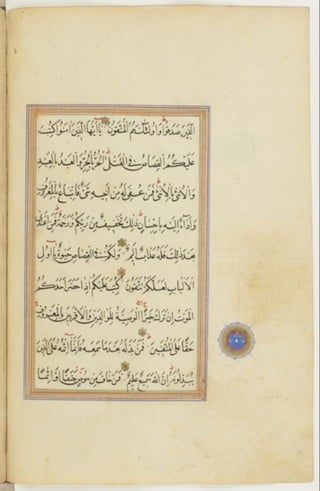 الَّذِينَ صَدَقُوا وَأُولَٰئِكَ هُمُ الْمُتَّقُونَ يَا أَيُّهَا الَّذِينَ آمَنُوا كُتِبَ
عَلَيْكُمُ الْقِصَاصُ فِي الْقَتْلَى الْحُرُّ بِالْحُرِّ وَالْعَبْدُ بِالْعَبْدِ
وَالْأُنْثَى بِالْأُنْثَى فَمَنْ عُفِيَ لَهُ مِنْ أَخِيهِ شَيْءٌ فَاتِّبَاعٌ بِالْمَعْرُوفِ
وَأَدَاءٌ إِلَيْهِ بِإِحْسَانٍ ذَٰلِكَ تَخْفِيفٌ مِنْ رَبِّكُمْ وَرَحْمَةٌ فَمَنِ اعْتَدَى
بَعْدَ ذَٰلِكَ فَلَهُ عَذَابٌ أَلِيمٌ وَلَكُمْ فِي الْقِصَاصِ حَيَوٰةٌ يَا أُولِي
الْأَلْبَابِ لَعَلَّكُمْ تَتَّقُونَ كُتِبَ عَلَيْكُمْ إِذَا حَضَرَ أَحَدَكُمُ
الْمَوْتُ إِنْ تَرَكَ خَيْرًا الْوَصِيَّةُ لِلْوَالِدَيْنِ وَالْأَقْرَبِينَ بِالْمَعْرُوفِ
حَقًّا عَلَى الْمُتَّقِينَ فَمَنْ بَدَّلَهُ بَعْدَمَا سَمِعَهُ فَإِنَّمَا إِثْمُهُ عَلَى الَّذِينَ
يُبَدِّلُونَهُ إِنَّ اللَّهَ سَمِيعٌ عَلِيمٌ فَمَنْ خَافَ مِنْ مُوصٍ جَنَفًا أَوْ إِثْمًا